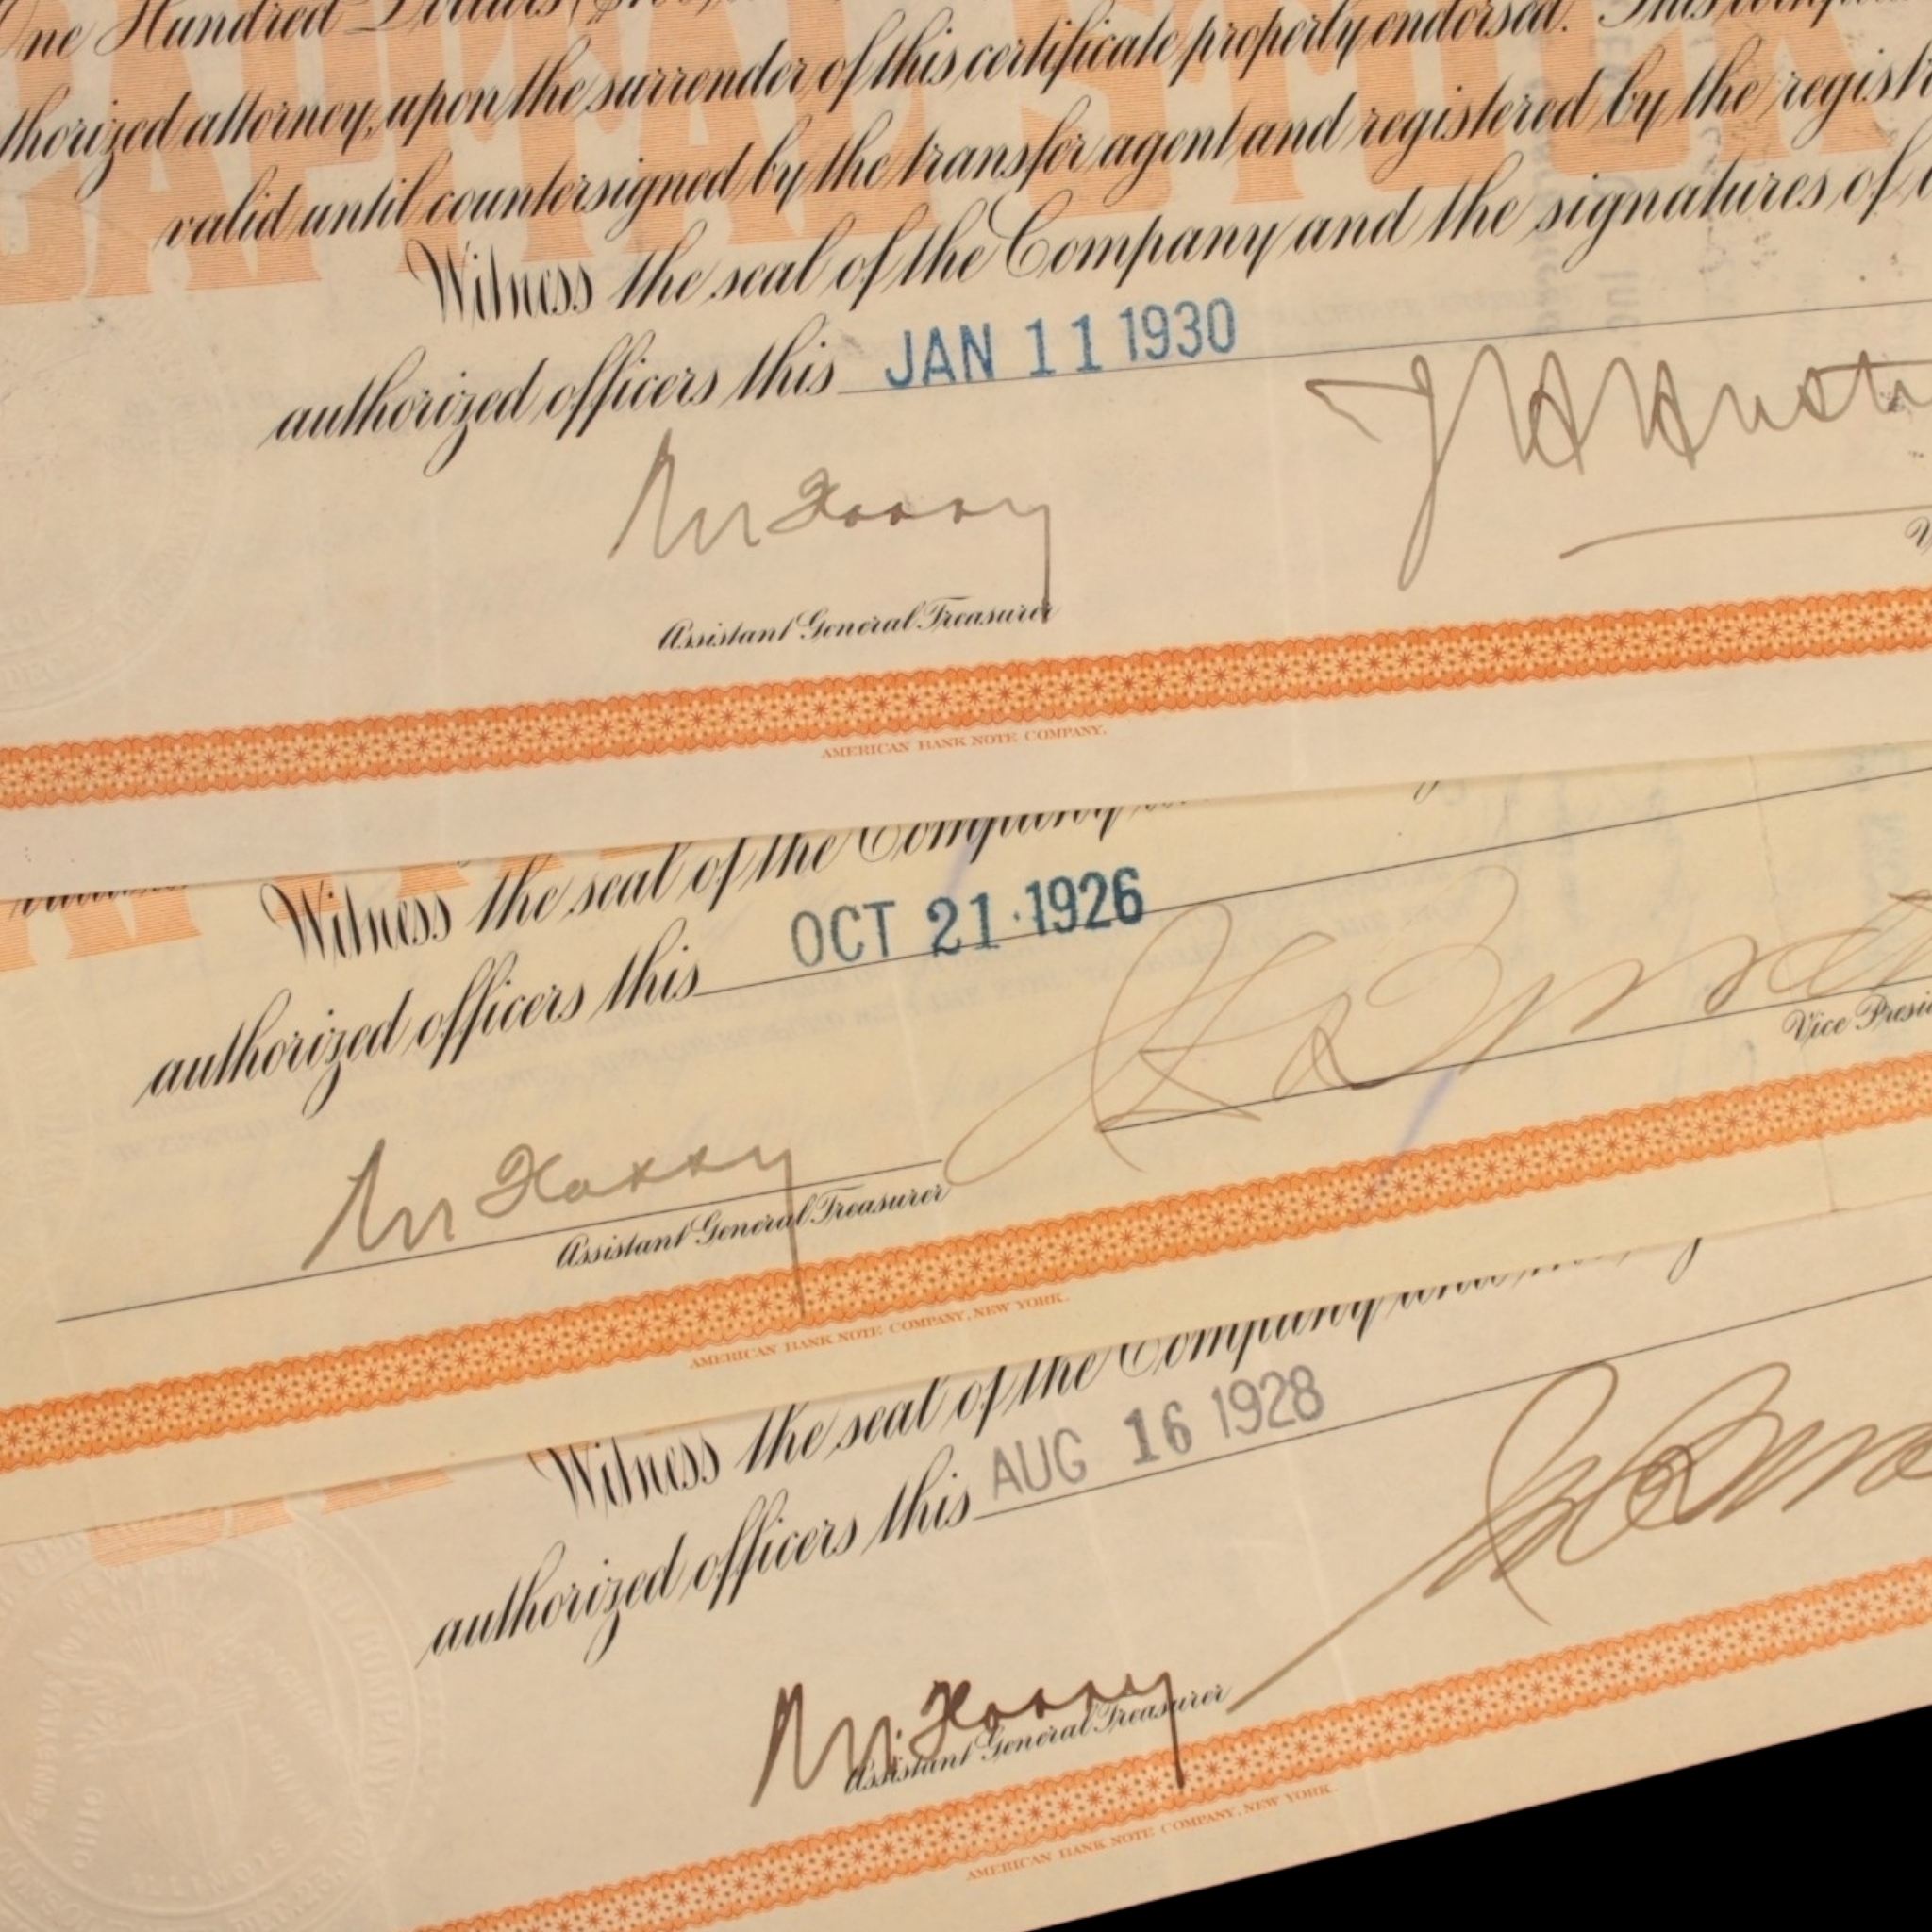 One Hundred Dollars ($100)
thorized attorney, upon the surrender of this certificate properly endorsed. This
valid until countersigned by the transfer agent and registered by the
Witness the seal of the Company and the signatures of
authorized officers this JAN 11 1930
Assistant General Treasurer
AMERICAN BANK NOTE COMPANY.
Witness the seal of the Company
authorized officers this OCT 21 1926
Vice Presi
Assistant General Treasurer
AMERICAN BANK NOTE COMPANY, NEW YORK.
Witness the seal of the Company
authorized officers this AUG 16 1928
Assistant General Treasurer
AMERICAN BANK NOTE COMPANY, NEW YORK.
OHIO
ILLINOIS